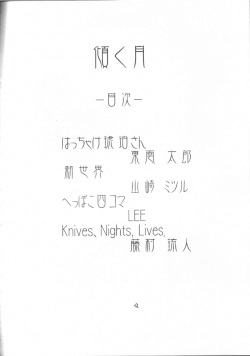 傾く月
－目次－
はっちゃけ琥珀さん
東雨 太郎
新世界
山崎 ミツル
へっぽこ四コマ
LEE
Knives, Nights, Lives.
藤村 琉人